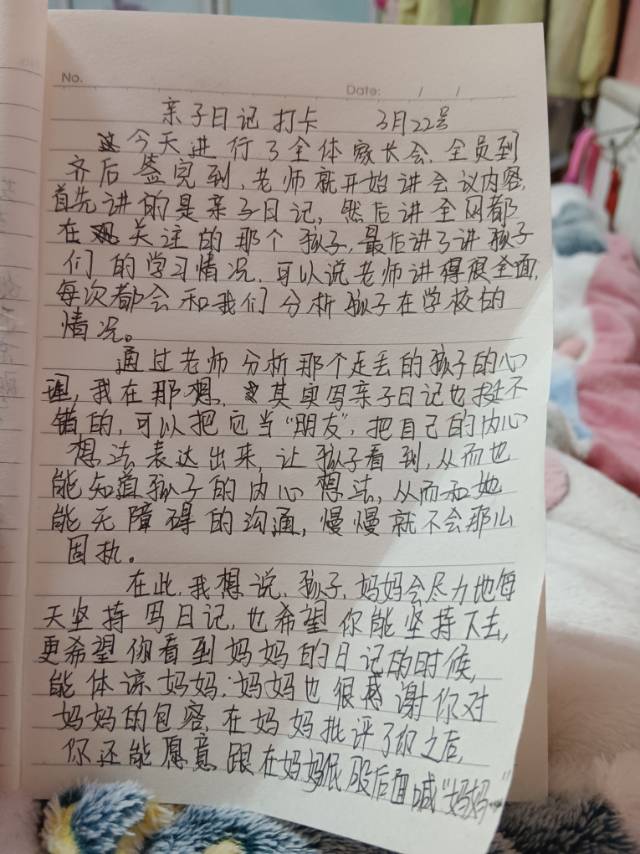 No.
Date: / /
亲子日记打卡 3月22号
今天进行了全体家长会,全员到
齐后签完到,老师就开始讲会议内容,
首先讲的是亲子日记,然后讲全网都
在关注的那个孩子,最后讲了讲孩子
们的学习情况,可以说老师讲得很全面,
每次都会和我们分析孩子在学校的
情况。
通过老师分析那个走丢的孩子的心
理,我在那想,其实写亲子日记也挺不
错的,可以把它当“朋友”,把自己的内心
想法表达出来,让孩子看到,从而也
能知道孩子的内心想法,从而和她
能无障碍的沟通,慢慢就不会那么
固执。
在此,我想说,孩子,妈妈会尽力地每
天坚持写日记,也希望你能坚持下去,
更希望你看到妈妈的日记的时候,
能体谅妈妈.妈妈也很感谢你对
妈妈的包容,在妈妈批评了你之后,
你还能愿意跟在妈妈屁股后面喊“妈妈…”